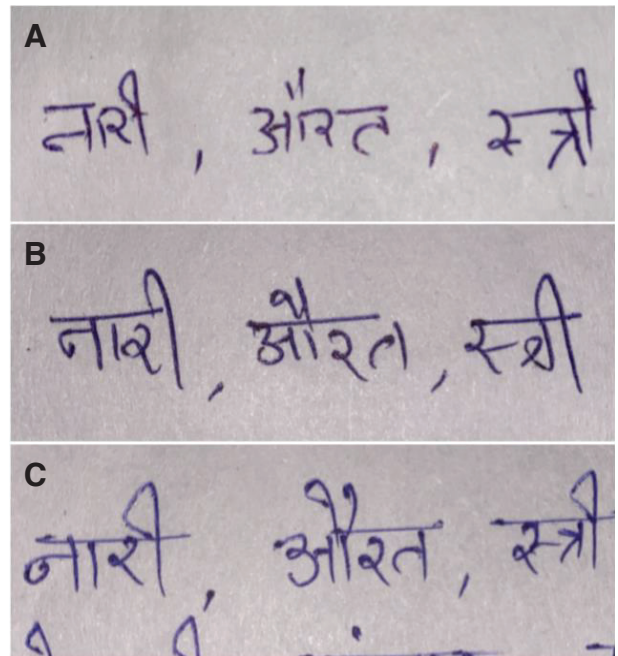 A
नारी, औरत, स्त्री
B
नारी, औरत, स्त्री
C
नारी, औरत, स्त्री